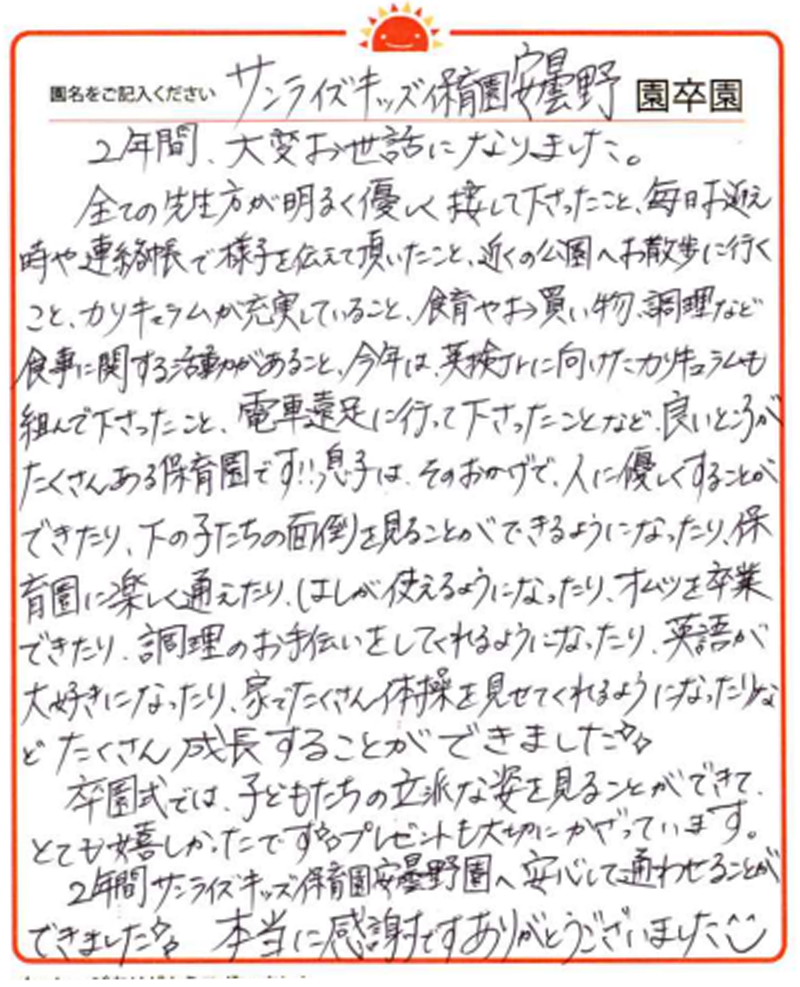 園名をご記入ください サンライズキッズ保育園安曇野 園卒園
2年間、大変お世話になりました。
全ての先生方が明るく優しく接して下さったこと、毎日お迎え
時や連絡帳で様子を伝えて頂いたこと、近くの公園へお散歩に行く
こと、カリキュラムが充実していること、食育やお買い物、調理など
食事に関する活動があること、今年は、英検Jrに向けたカリキュラムも
組んで下さったこと、電車遠足に行って下さったことなど、良いところが
たくさんある保育園です!!息子は、そのおかげで、人に優しくすることが
できたり、下の子たちの面倒を見ることができるようになったり、保
育園に楽しく通えたり、はしが使えるようになったり、オムツを卒業
できたり、調理のお手伝いをしてくれるようになったり、英語が
大好きになったり、家でたくさん体操を見せてくれるようになったりな
どたくさん成長することができました
卒園式では、子どもたちの立派な姿を見ることができて、
とても嬉しかったですプレゼントも大切にかざっています。
2年間サンライズキッズ保育園安曇野園へ安心して通わせることが
できました 本当に感謝ですありがとうございました^^